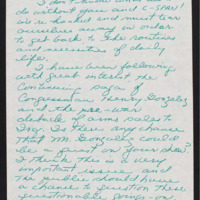 I don't know what we'd
do without you and C-SPAN!
We're hooked and must tear
ourselves away in order
to get back to the routines
and necessities of daily
life.
I have been following
with great interest the
continuing saga of
Congressman Henry Gonzalez
and the pre-war
debacle of arms sales to
Iraq. Is there any chance
that Mr. Gonzalez could
be a guest on your show?
I think this is a very
important issue, and
the public should have
a chance to question these
questionable goings-on